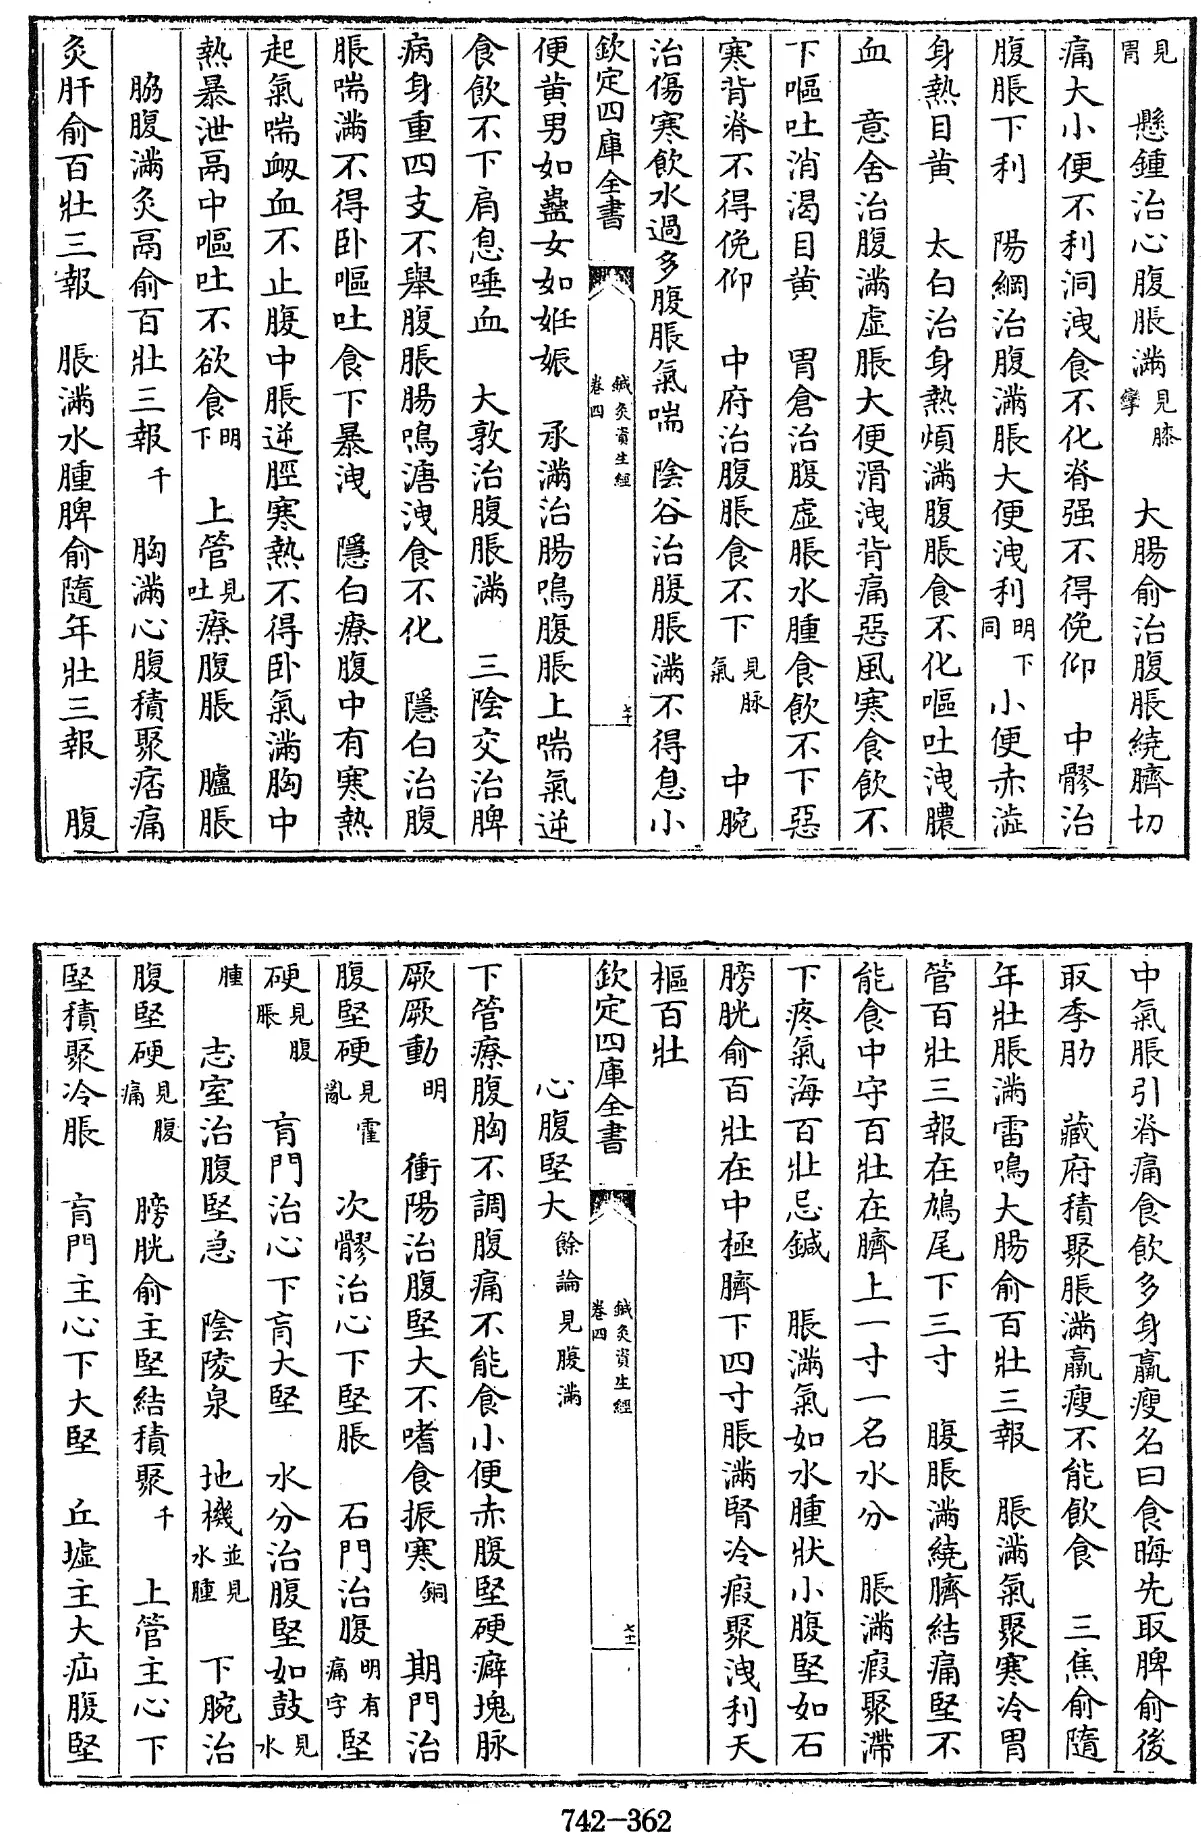 見胃　懸鍾治心腹脹滿見膝攣　大腸俞治腹脹繞臍切
痛大小便不利洞洩食不化脊强不得俛仰　中髎治
腹脹下利　陽綱治腹滿脹大便洩利明下同　小便赤澁
身熱目黄　太白治身熱煩滿腹脹食不化嘔吐洩膿
血　意舍治腹滿虛脹大便滑洩背痛惡風寒食飲不
下嘔吐消渴目黄　胃倉治腹虛脹水腫食飲不下惡
寒背脊不得俛仰　中府治腹脹食不下見脉氣　中腕
治傷寒飲水過多腹脹氣喘　陰谷治腹脹滿不得息小
欽定四庫全書　鍼灸資生經　卷四　七十
便黄男如蠱女如姙娠　承滿治腸鳴腹脹上喘氣逆
食飲不下肩息唾血　大敦治腹脹滿　三陰交治脾
病身重四支不舉腹脹腸鳴溏洩食不化　隱白治腹
脹喘滿不得卧嘔吐食下暴洩　隱白療腹中有寒熱
起氣喘衂血不止腹中脹逆脛寒熱不得卧氣滿胸中
熱暴泄鬲中嘔吐不欲食明下　上管見吐療腹脹　臚脹
脇腹滿灸鬲俞百壯三報千　胸滿心腹積聚痞痛
灸肝俞百壯三報　脹滿水腫脾俞隨年壯三報　腹
中氣脹引脊痛食飲多身羸瘦名曰食晦先取脾俞後
取季肋　藏府積聚脹滿羸瘦不能飲食　三焦俞隨
年壯脹滿雷鳴大腸俞百壯三報　脹滿氣聚寒冷胃
管百壯三報在鳩尾下三寸　腹脹滿繞臍結痛堅不
能食中守百壯在臍上一寸一名水分　脹滿瘕聚滯
下疼氣海百壯忌鍼　脹滿氣如水腫狀小腹堅如石
膀胱俞百壯在中極臍下四寸脹滿腎冷瘕聚洩利天
樞百壯
欽定四庫全書　鍼灸資生經　卷四　七十一
心腹堅大餘論見腹滿
下管療腹胸不調腹痛不能食小便赤腹堅硬癖塊脉
厥厥動明　衝陽治腹堅大不嗜食振寒銅　期門治
腹堅硬見霍亂　次髎治心下堅脹　石門治腹明有痛字堅
硬見腹脹　肓門治心下肓大堅　水分治腹堅如鼓見水
腫　志室治腹堅急　陰陵泉　地機並見水腫　下腕治
腹堅硬見腹痛　膀胱俞主堅結積聚千　上管主心下
堅積聚冷脹　肓門主心下大堅　丘墟主大疝腹堅
742-362